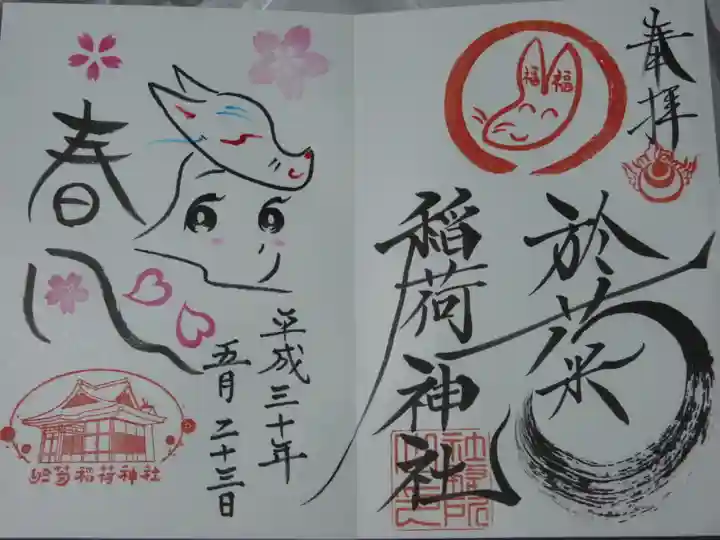 奉拝
福 福
於菊
稲荷神社
社務所
春風
平成三十年
五月二十三日
於菊稲荷神社